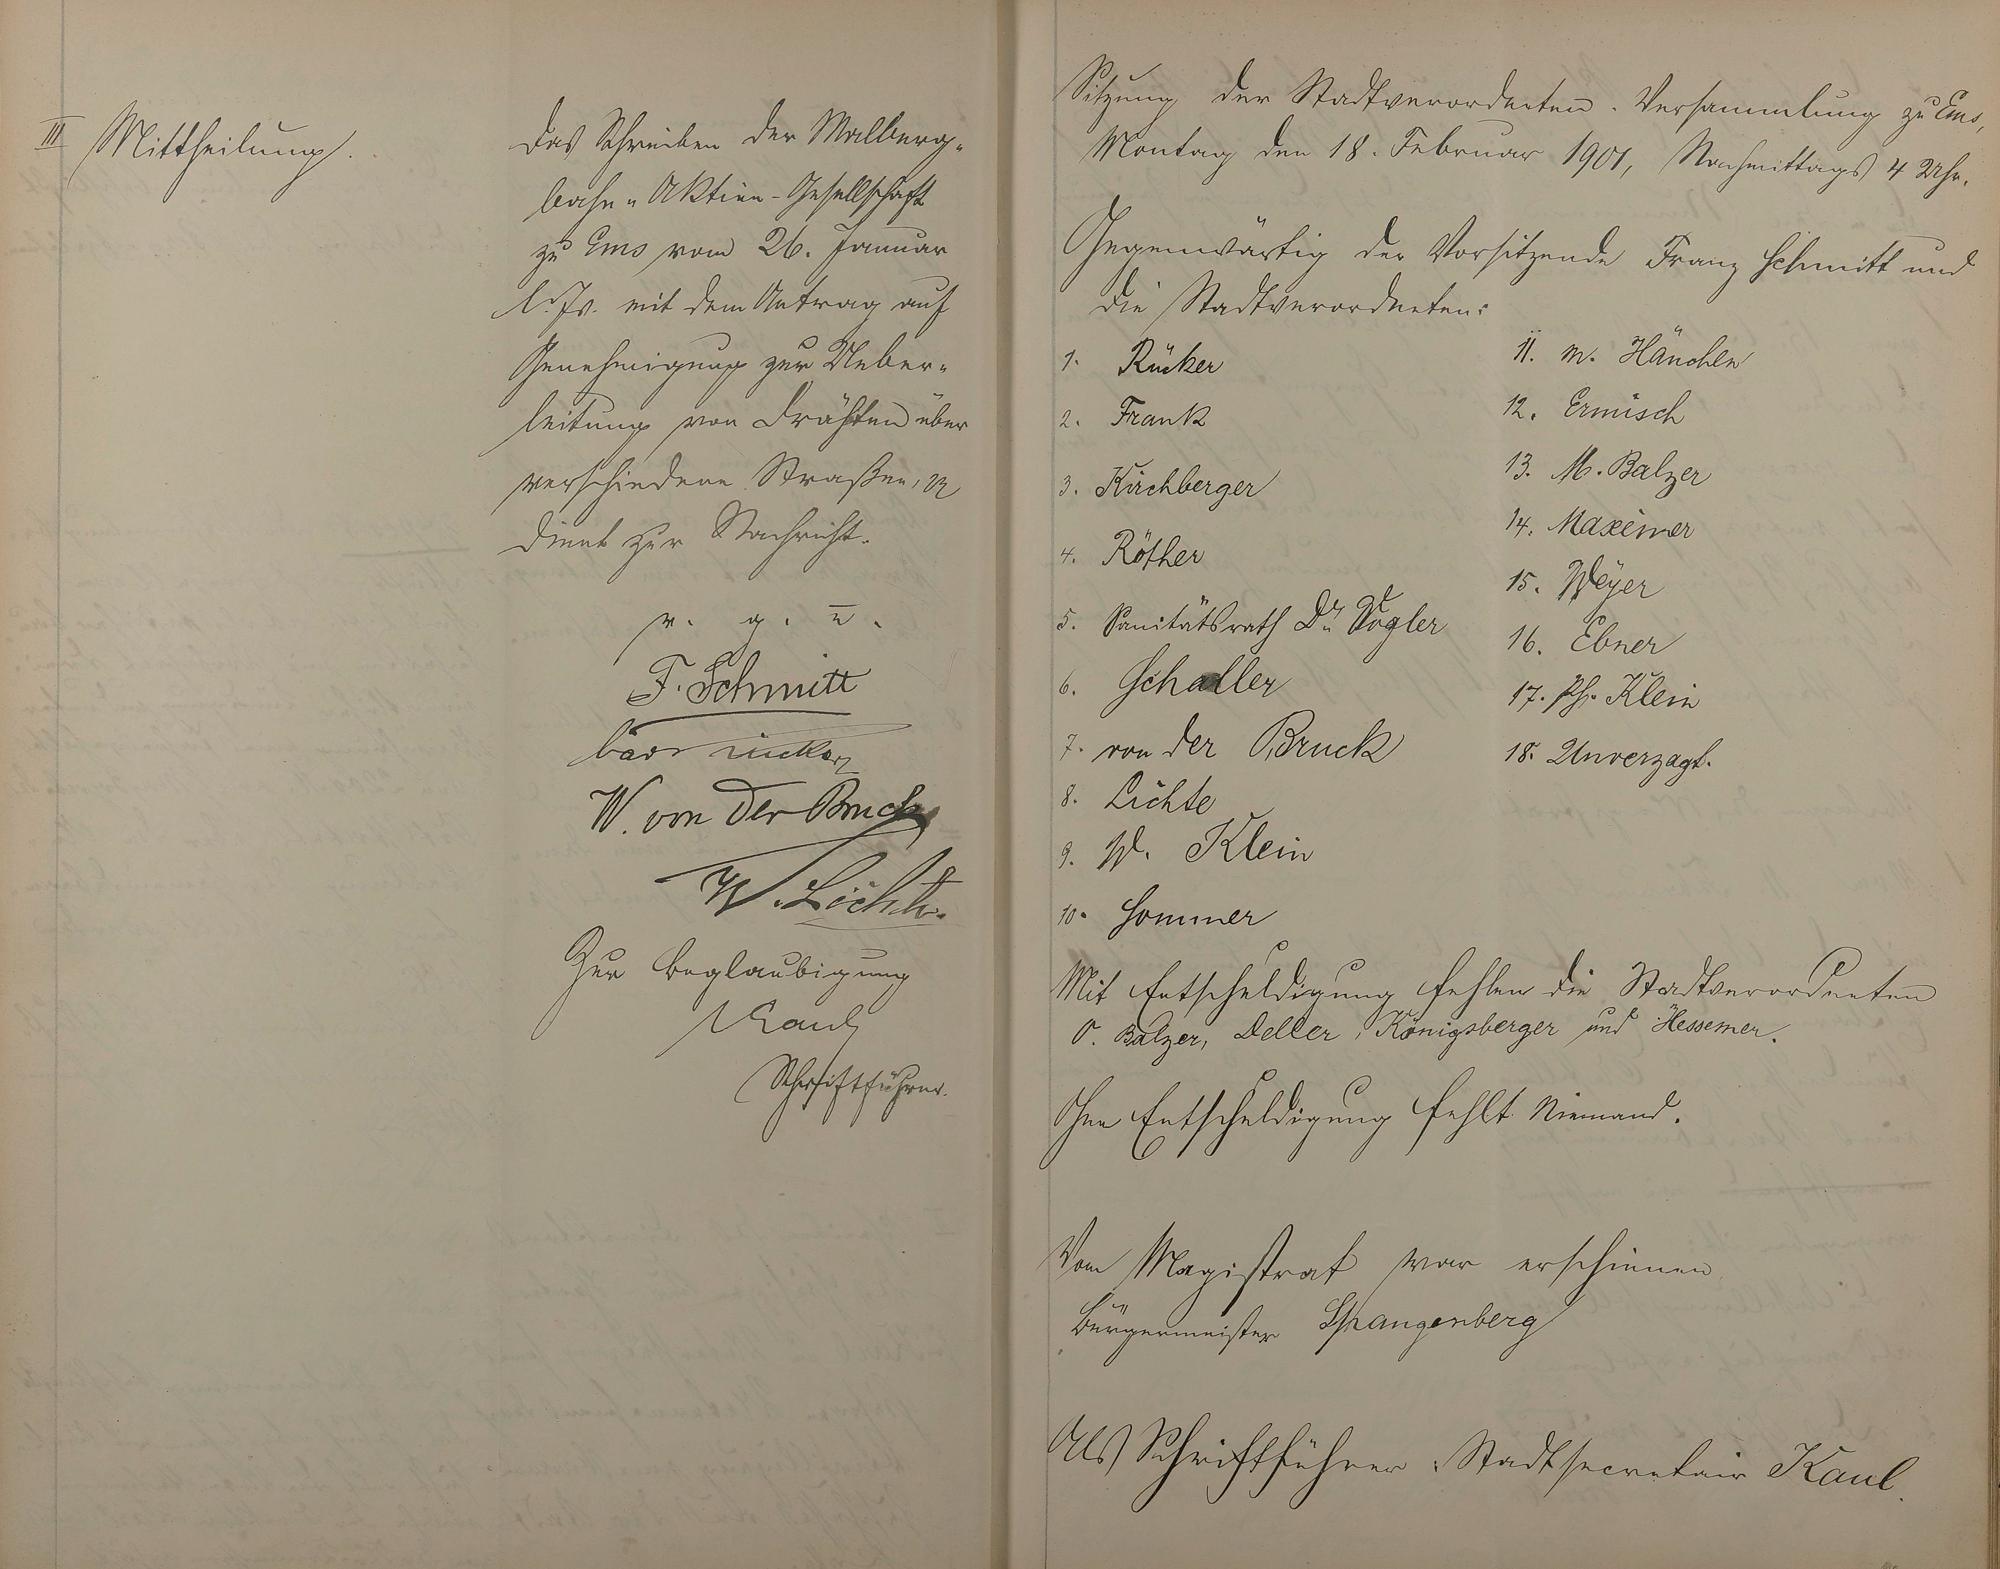 III Mittheilung.
Das Schreiben der Malberg-
bahn-Aktien-Gesellschaft
zu Ems vom 26. Januar
l. Js. mit dem Antrag auf
Genehmigung zur Ueber-
leitung von Drähten über
verschiedene Straßen,
dient zur Nachricht.
v. g. u.
F. Schmitt
W. von der Bruck
W. Lichte.
Zur Beglaubigung
Kaul
Schriftführer.
Sitzung der Stadtverordneten-Versammlung zu Ems,
Montag den 18. Februar 1901, Nachmittags 4 Uhr.
Gegenwärtig der Vorsitzende Franz Schmitt und
die Stadtverordneten:
1. Rücker
2. Frank
3. Kirchberger
4. Röther
5. Sanitätsrath Dr. Vogler
6. Schaller
7. von der Bruck
8. Lichte
9. W. Klein
10. Sommer
11. M. Hänchen
12. Ermisch
13. M. Balzer
14. Maxeiner
15. Weyer
16. Ebner
17. Ph. Klein
18. Unverzagt.
Mit Entschuldigung fehlen die Stadtverordneten
O. Balzer, Deller, Königsberger und Hessemer.
Ohne Entschuldigung fehlt Niemand.
Vom Magistrat war erschienen
Bürgermeister Spangenberg
Als Schriftführer: Stadtsecretair Kaul.